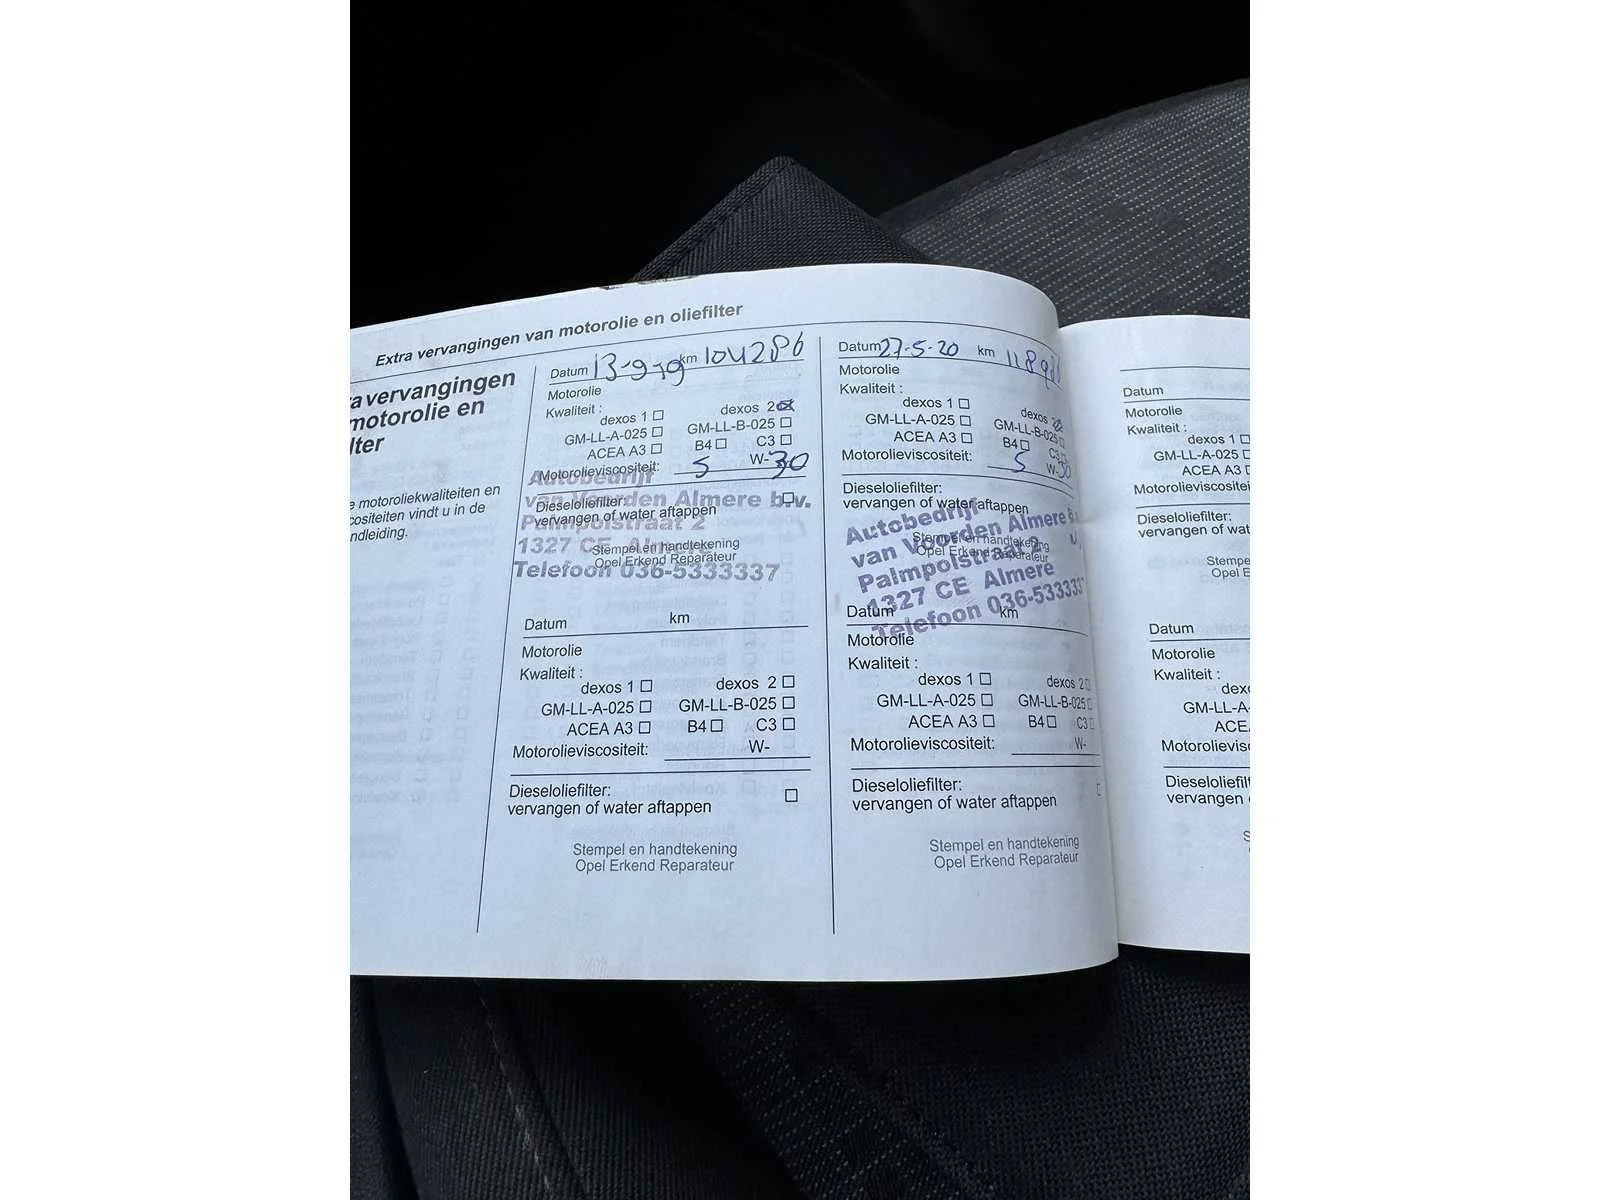 Extra vervangingen van motorolie en oliefilter
a vervangingen
motorolie en
lter
e motoroliekwaliteiten en
cositeiten vindt u in de
ndleiding.
Datum 13-9-19 km 104286
Motorolie
Kwaliteit :
dexos 1 ☐ dexos 2 ☒
GM-LL-A-025 ☐ GM-LL-B-025 ☐
ACEA A3 ☐ B4 ☐ C3 ☐
Motorolieviscositeit: 5 W-30
Dieseloliefilter: ☐
vervangen of water aftappen
Stempel en handtekening
Opel Erkend Reparateur
Autobedrijf
van Voorden Almere b.v.
Palmpolstraat 2
1327 CE Almere
Telefoon 036-5333337
Datum km
Motorolie
Kwaliteit :
dexos 1 ☐ dexos 2 ☐
GM-LL-A-025 ☐ GM-LL-B-025 ☐
ACEA A3 ☐ B4 ☐ C3 ☐
Motorolieviscositeit: W-
Dieseloliefilter:
vervangen of water aftappen ☐
Stempel en handtekening
Opel Erkend Reparateur
Datum 27-5-20 km
Motorolie
Kwaliteit :
dexos 1 ☐ dexos 2 ☒
GM-LL-A-025 ☐ GM-LL-B-025 ☐
ACEA A3 ☐ B4 ☐ C3 ☐
Motorolieviscositeit: 5 W-30
Dieseloliefilter:
vervangen of water aftappen
Stempel en handtekening
Opel Erkend Reparateur
Autobedrijf
van Voorden Almere b.v.
Palmpolstraat 2
1327 CE Almere
Telefoon 036-533333
Datum km
Motorolie
Kwaliteit :
dexos 1 ☐ dexos 2 ☐
GM-LL-A-025 ☐ GM-LL-B-025 ☐
ACEA A3 ☐ B4 ☐ C3 ☐
Motorolieviscositeit: W-
Dieseloliefilter:
vervangen of water aftappen ☐
Stempel en handtekening
Opel Erkend Reparateur
Datum
Motorolie
Kwaliteit :
dexos 1 ☐
GM-LL-A-025 ☐
ACEA A3
Motorolieviscositei
Dieseloliefilter:
vervangen of wat
Stempe
Opel E
Datum
Motorolie
Kwaliteit :
dexo
GM-LL-A-
ACEA
Motorolieviscosi
Dieseloliefilt
vervangen
S